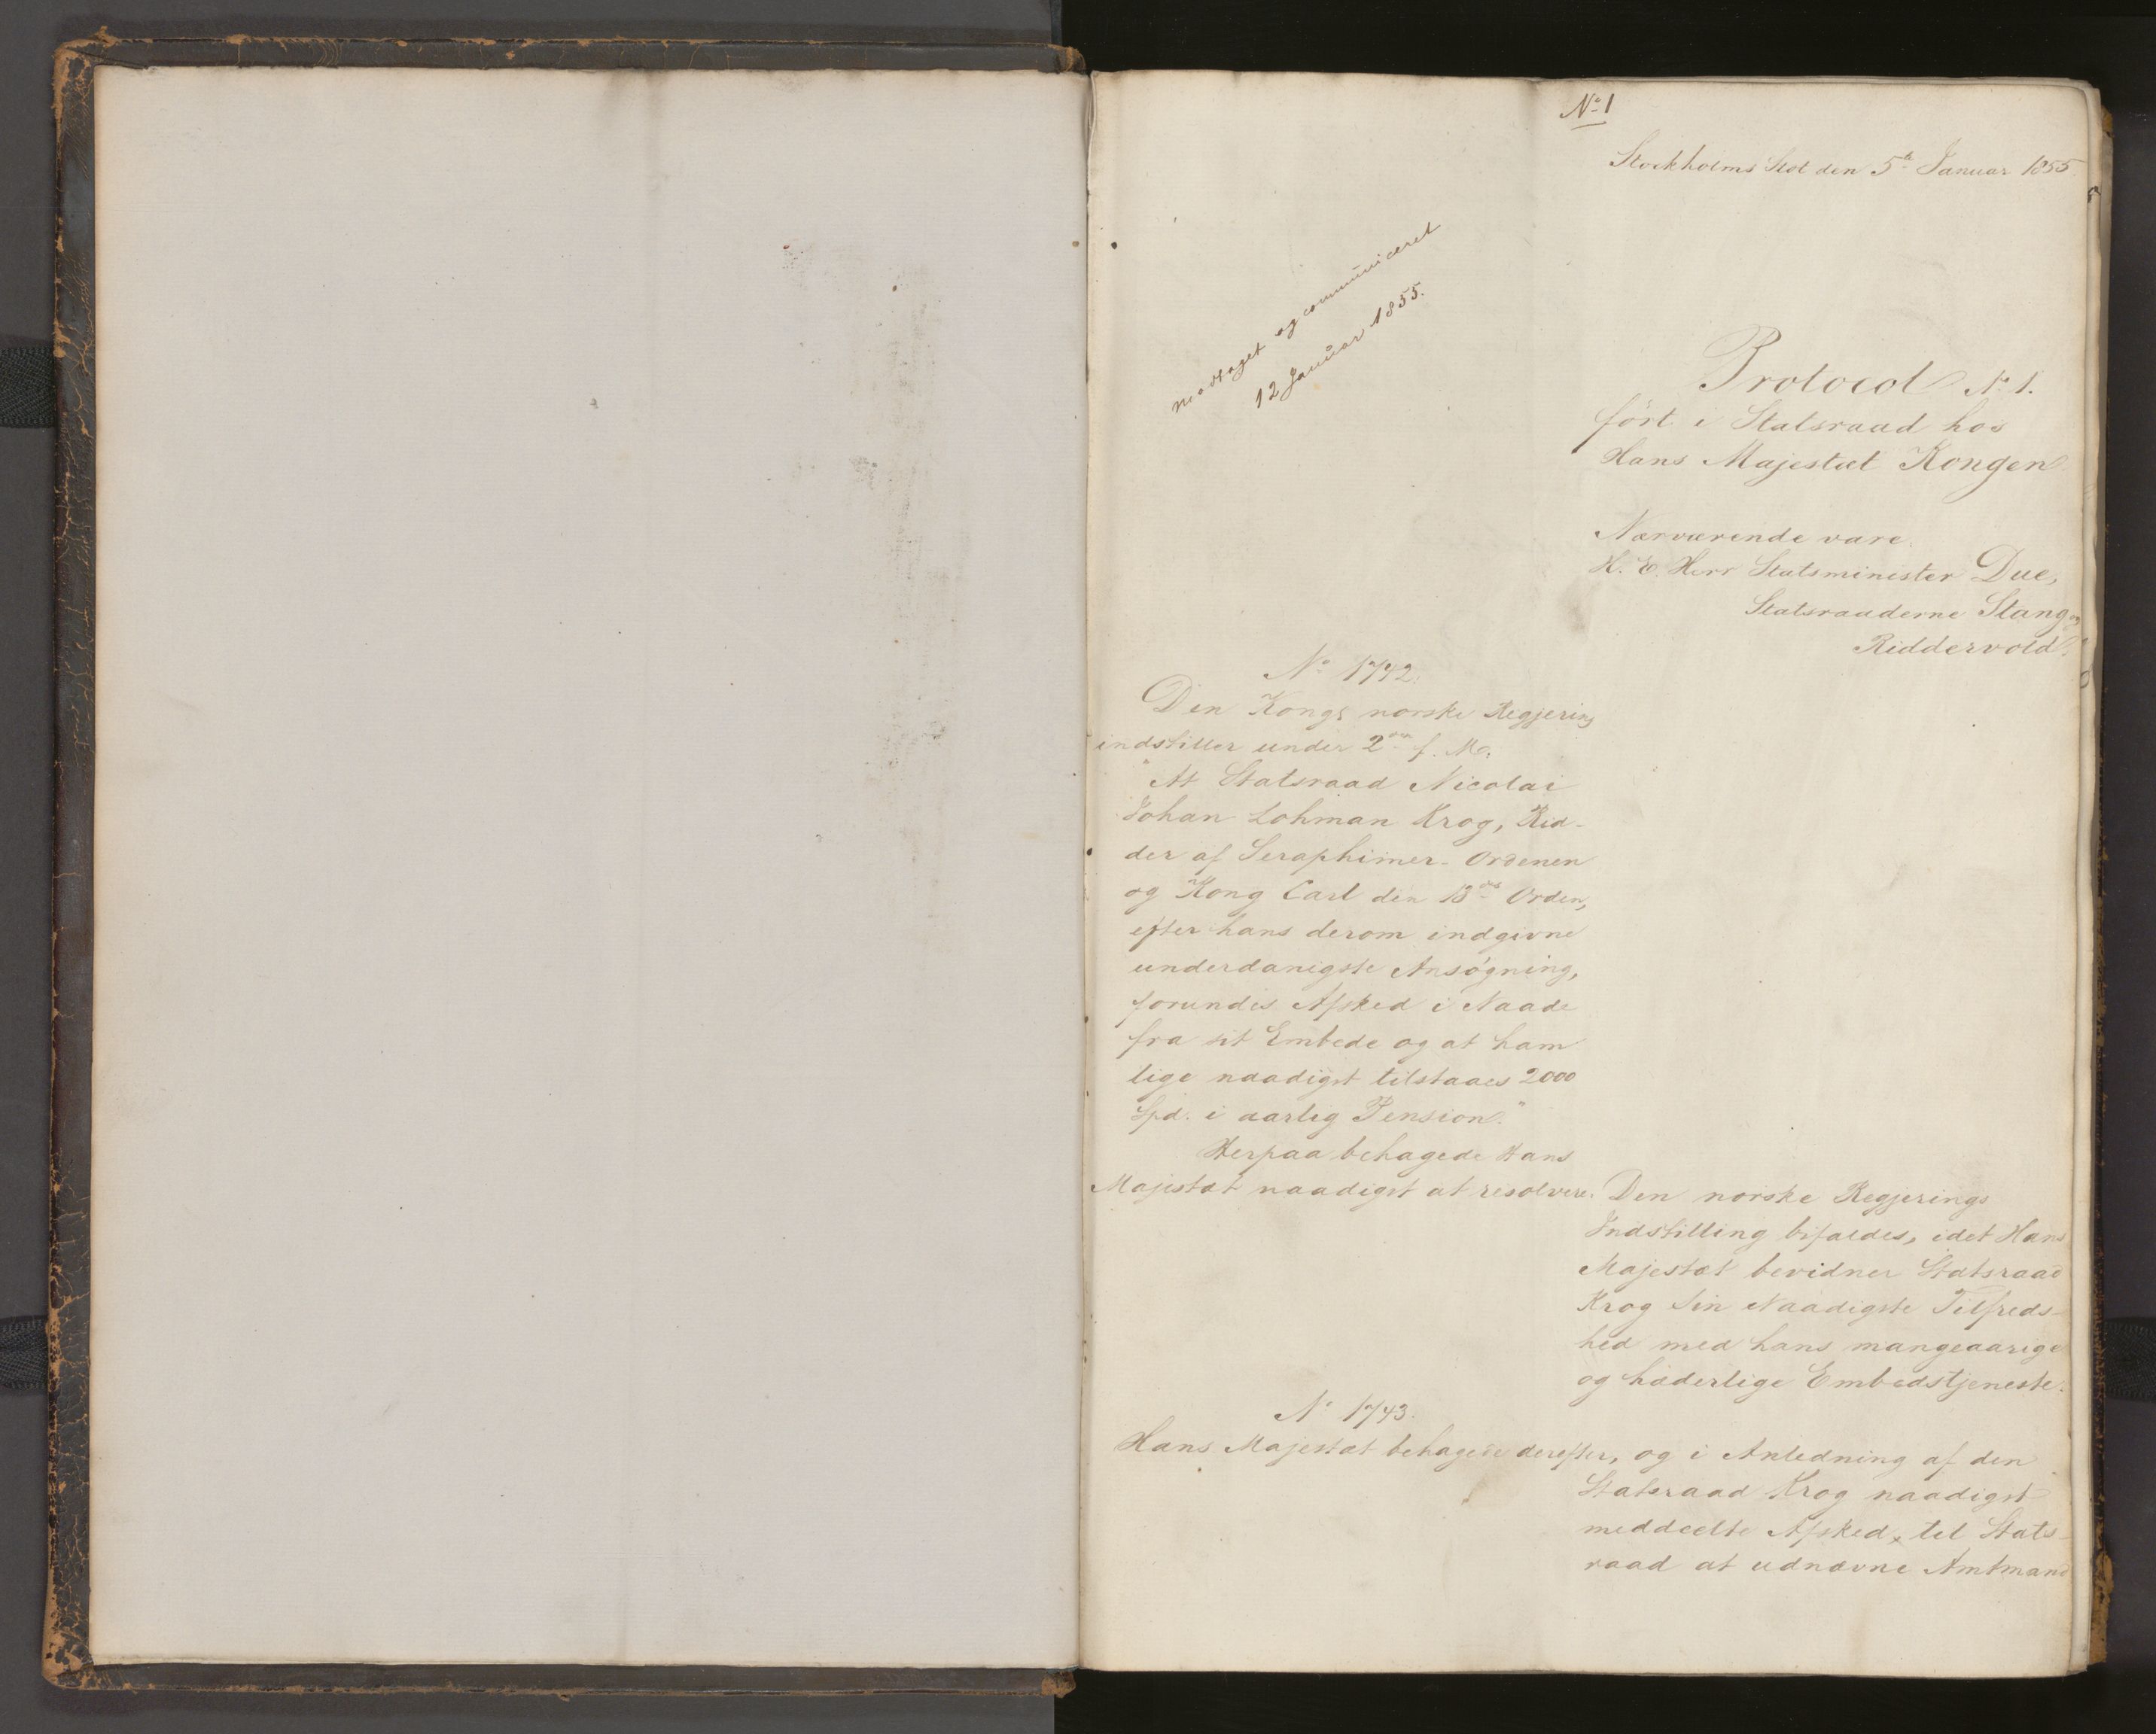 No 1
Stockholms Slot den 5te Januar 1855.
modtaget og communiceret
12 Januar 1855.
Protocol No 1.
ført i Statsraad hos
Hans Majestæt Kongen
Nærværende vare:
H. E. Herr Statsminister Due,
Statsraaderne Stang og
Riddervold.
No 1742.
Den Kongs norske Regjering
indstiller under 2den f. M.
"At Statsraad Nicolai
Johan Lohman Krog, Rid-
der af Seraphimer-Ordenen
og Kong Carl den 13des Orden,
efter hans derom indgivne
underdanigste Ansøgning,
forundes Afsked i Naade
fra sit Embede og at ham
lige naadigst tilstaaes 2000
Spd. i aarlig Pension."
Herpaa behagede Hans
Majestæt naadigst at resolvere:
Den norske Regjerings
Indstilling bifaldes, idet Hans
Majestæt bevidner Statsraad
Krog Sin Naadigste Tilfreds-
hed med hans mangeaarige
og hæderlige Embedstjeneste.
No 1743.
Hans Majestæt behagede derefter, og i Anledning af den
Statsraad Krog naadigst
meddeelte Afsked, til Stats-
raad at udnævne Amtmand